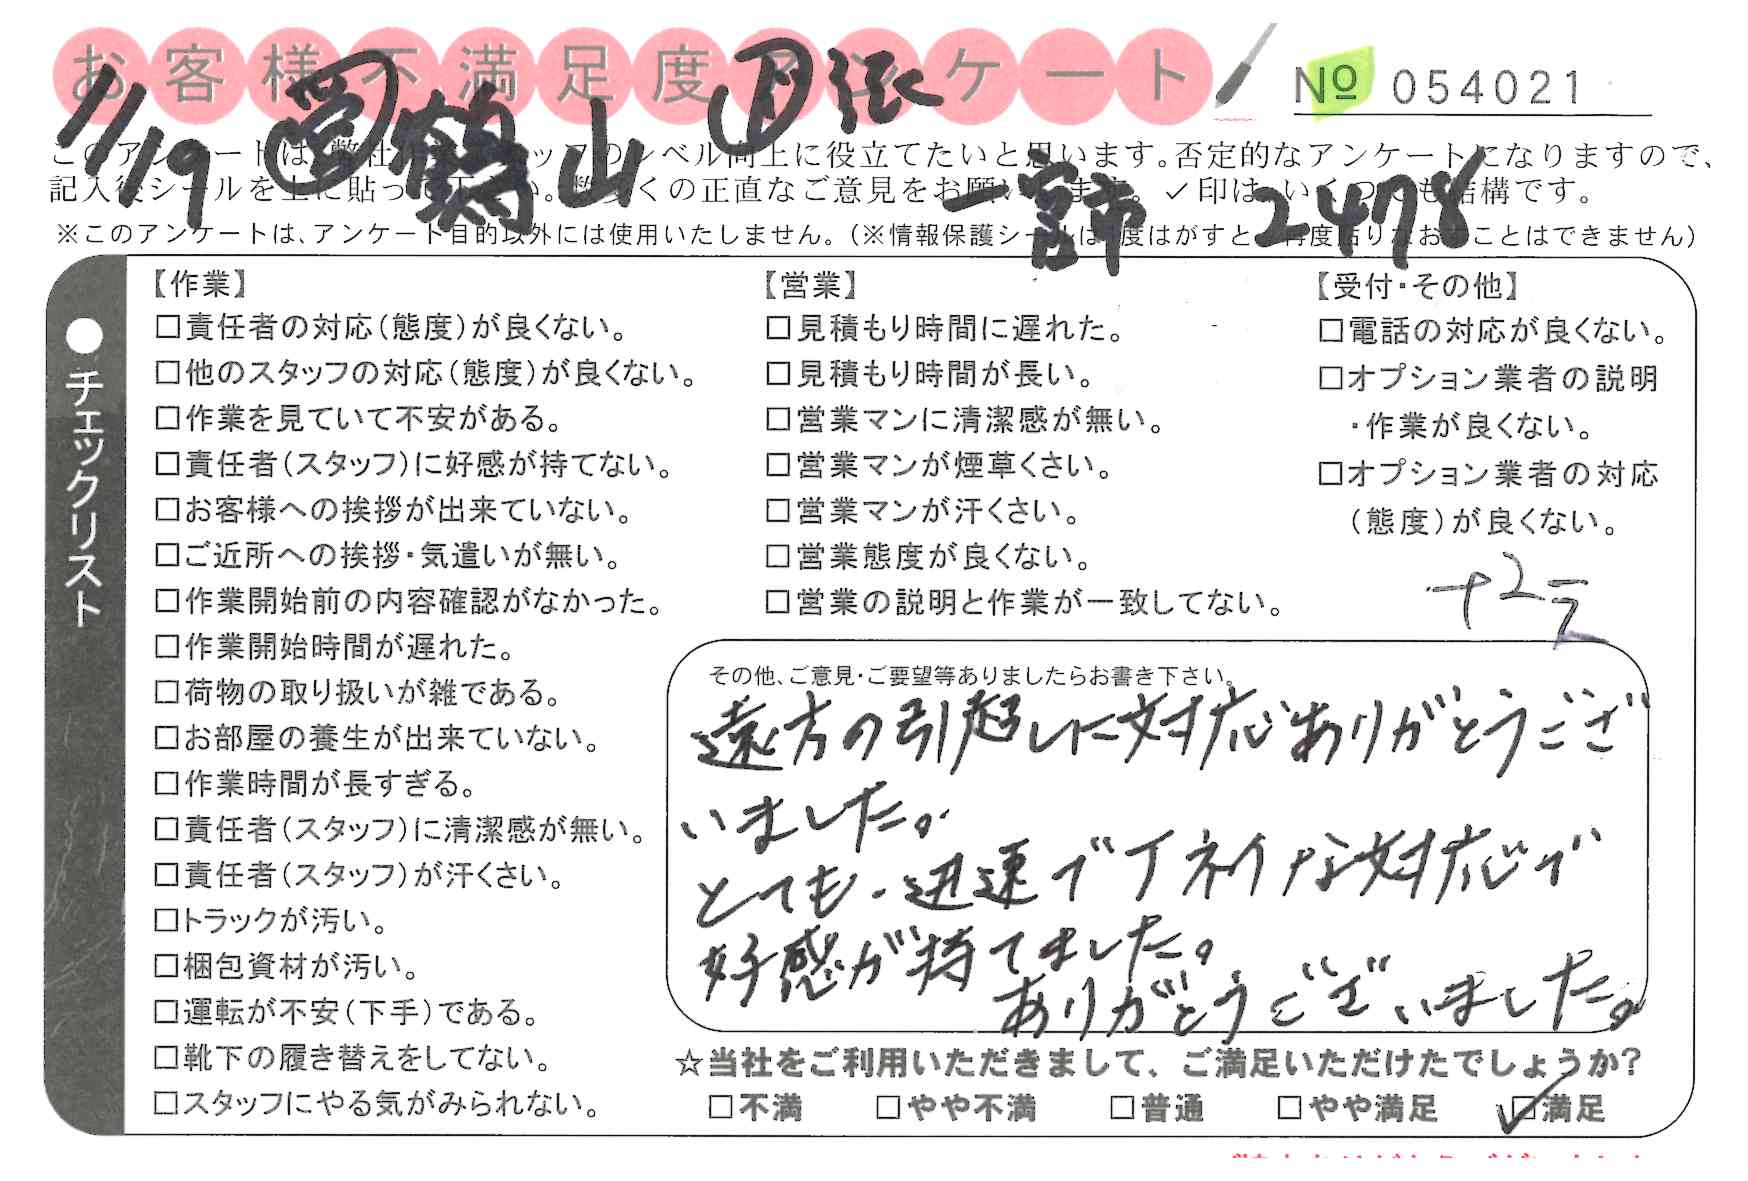 お客様不満足度アンケート
№ 054021
1/19 営 鶴山
一宮市 2478
このアンケートは、弊社スタッフのレベル向上に役立てたいと思います。否定的なアンケートになりますので、
記入後シールを上に貼って下さい。数多くの正直なご意見をお願いします。✓印は、いくつでも結構です。
※このアンケートは、アンケート目的以外には使用いたしません。(※情報保護シールは1度はがすと、再度貼りなおすことはできません)
●チェックリスト
【作業】
□責任者の対応(態度)が良くない。
□他のスタッフの対応(態度)が良くない。
□作業を見ていて不安がある。
□責任者(スタッフ)に好感が持てない。
□お客様への挨拶が出来ていない。
□ご近所への挨拶・気遣いが無い。
□作業開始前の内容確認がなかった。
□作業開始時間が遅れた。
□荷物の取り扱いが雑である。
□お部屋の養生が出来ていない。
□作業時間が長すぎる。
□責任者(スタッフ)に清潔感が無い。
□責任者(スタッフ)が汗くさい。
□トラックが汚い。
□梱包資材が汚い。
□運転が不安(下手)である。
□靴下の履き替えをしてない。
□スタッフにやる気がみられない。
【営業】
□見積もり時間に遅れた。
□見積もり時間が長い。
□営業マンに清潔感が無い。
□営業マンが煙草くさい。
□営業マンが汗くさい。
□営業態度が良くない。
□営業の説明と作業が一致してない。
【受付・その他】
□電話の対応が良くない。
□オプション業者の説明
・作業が良くない。
□オプション業者の対応
(態度)が良くない。
その他、ご意見・ご要望等ありましたらお書き下さい。
遠方の引越しに対応ありがとうござ
いました。
とても迅速でテイネイな対応で
好感が持てました。
ありがとうございました。
☆当社をご利用いただきまして、ご満足いただけたでしょうか?
□不満 □やや不満 □普通 □やや満足 ☑満足